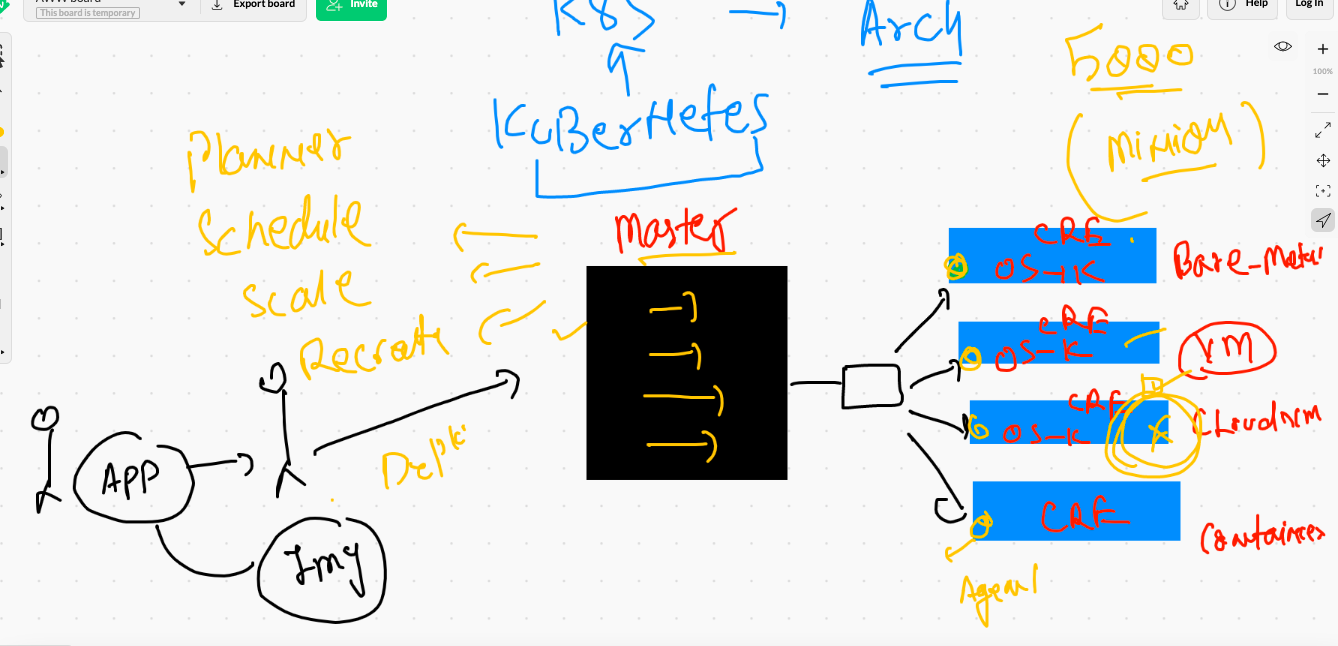 AWW Board
This board is temporary
Export board
Invite
Help
Log in
100%
K8S → Arch
5000
KuBerNetes
(MiNioN)
Planner
Schedule
Scale
Recrate
Master
CRE
OS-K
Bare-Metal
CRE
OS-K
VM
CRE
OS-K
CloudVM
CRE
Containers
Agent
App
Img